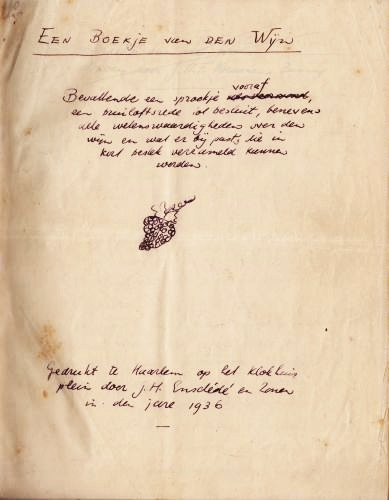 Een Boekje van den Wijn
Bevattende een sprookje vooraf,
een bruiloftsrede tot besluit, benevens
alle wetenswaardigheden over den
wijn en wat er bij past, die in
kort bestek verzameld kunnen
worden.
Gedrukt te Haarlem op het Klokhuis
plein door J.H. Enschédé en Zonen
in den jare 1936